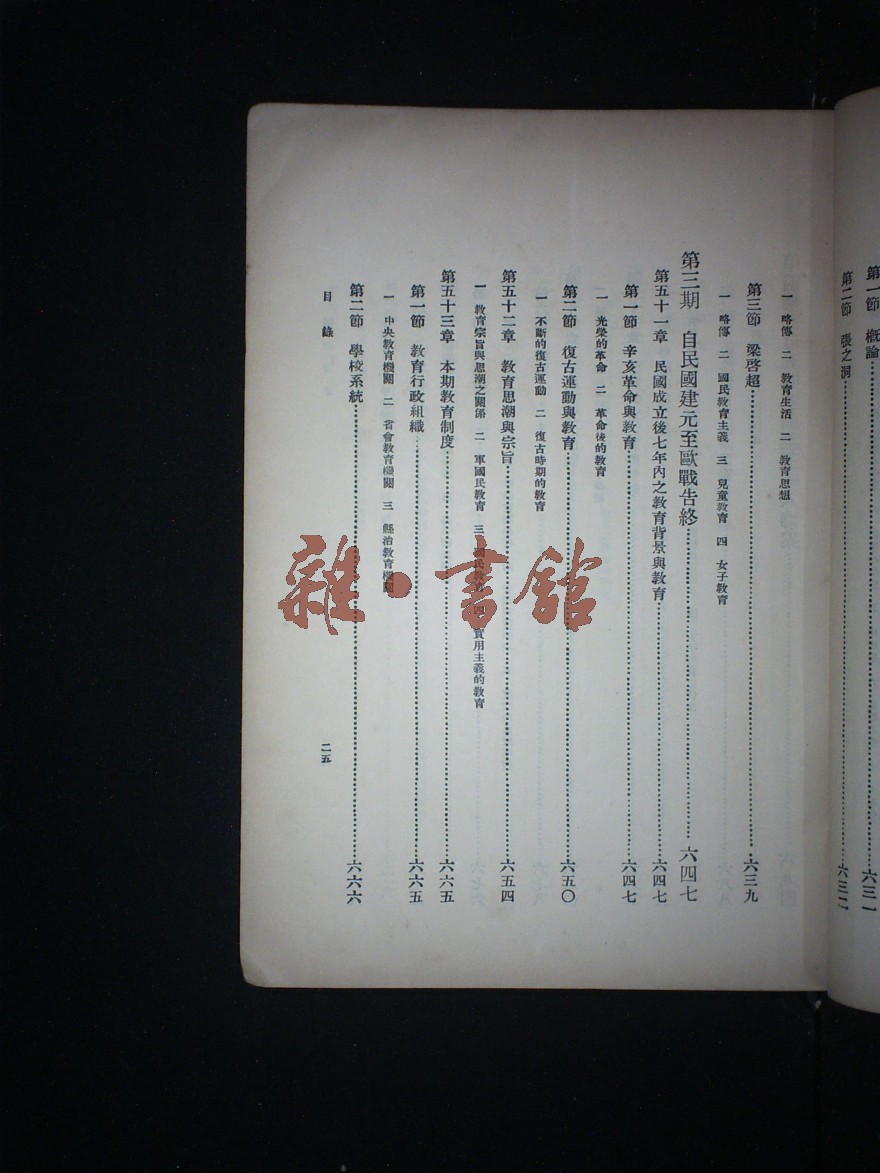 第一節 概論……六三一
第二節 張之洞……六三二
一 略傳 二 教育生活 二 教育思想
第三節 梁啓超……六三九
一 略傳 二 國民教育主義 三 兒童教育 四 女子教育
第三期 自民國建元至歐戰告終……六四七
第五十一章 民國成立後七年內之教育背景與教育……六四七
第一節 辛亥革命與教育……六四七
一 光榮的革命 二 革命後的教育
第二節 復古運動與教育……六五〇
一 不斷的復古運動 二 復古時期的教育
第五十二章 教育思潮與宗旨……六五四
一 教育宗旨與思潮之關係 二 軍國民教育 三 國民教育 四 實用主義的教育
第五十三章 本期教育制度……六六五
第一節 教育行政組織……六六五
一 中央教育機關 二 省會教育機關 三 縣治教育機關
第二節 學校系統……六六六
目錄 二五
雜·書館